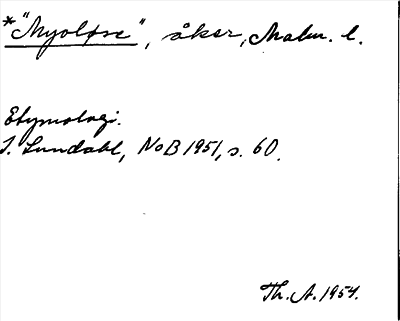 *"Myoløse", åker, Malm. l.
Etymologi.
I. Lundahl, NoB 1951, s. 60.
Th. A. 1954.